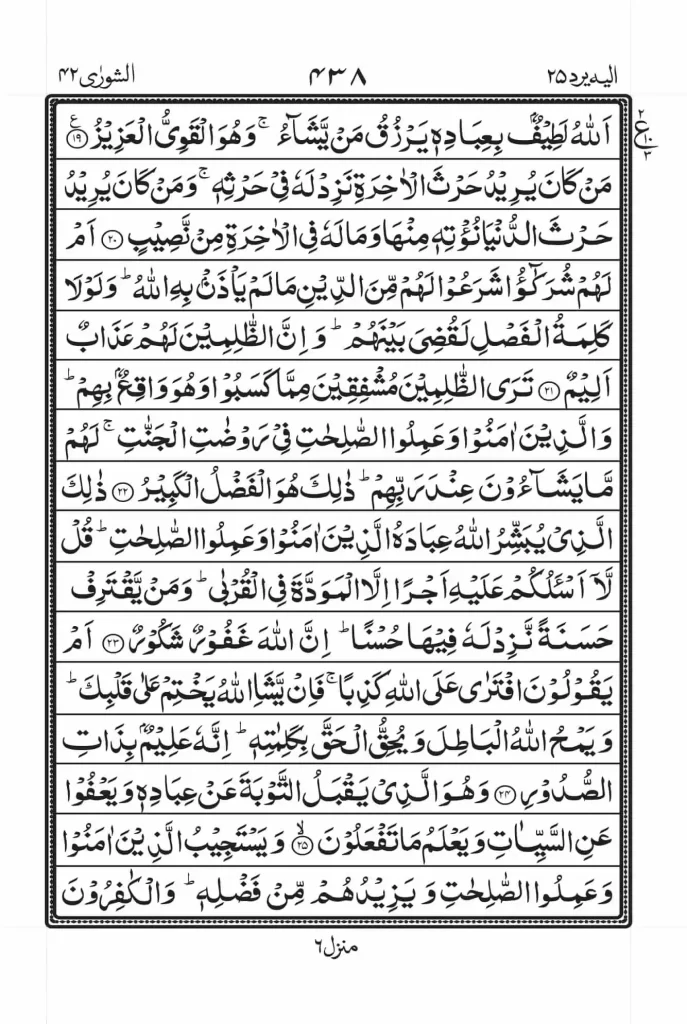 الیه یرد ۲۵ ۴۳۸ الشورٰی ۴۲
اَللّٰهُ لَطِیْفٌۢ بِعِبَادِهٖ یَرْزُقُ مَنْ یَّشَآءُ ۚ وَهُوَ الْقَوِیُّ الْعَزِیْزُ ﴿۱۹﴾ ع
۲ ع ۱۰ ۳
مَنْ كَانَ یُرِیْدُ حَرْثَ الْاٰخِرَةِ نَزِدْ لَهٗ فِیْ حَرْثِهٖ ۚ وَمَنْ كَانَ یُرِیْدُ
حَرْثَ الدُّنْیَا نُؤْتِهٖ مِنْهَا وَمَا لَهٗ فِی الْاٰخِرَةِ مِنْ نَّصِیْبٍ ﴿۲۰﴾ اَمْ
لَهُمْ شُرَكٰٓؤُا شَرَعُوْا لَهُمْ مِّنَ الدِّیْنِ مَا لَمْ یَاْذَنْۢ بِهِ اللّٰهُ ؕ وَلَوْلَا
كَلِمَةُ الْفَصْلِ لَقُضِیَ بَیْنَهُمْ ؕ وَاِنَّ الظّٰلِمِیْنَ لَهُمْ عَذَابٌ
اَلِیْمٌ ﴿۲۱﴾ تَرَی الظّٰلِمِیْنَ مُشْفِقِیْنَ مِمَّا كَسَبُوْا وَهُوَ وَاقِعٌۢ بِهِمْ ؕ
وَالَّذِیْنَ اٰمَنُوْا وَعَمِلُوا الصّٰلِحٰتِ فِیْ رَوْضٰتِ الْجَنّٰتِ ۚ لَهُمْ
مَّا یَشَآءُوْنَ عِنْدَ رَبِّهِمْ ؕ ذٰلِكَ هُوَ الْفَضْلُ الْكَبِیْرُ ﴿۲۲﴾ ذٰلِكَ
الَّذِیْ یُبَشِّرُ اللّٰهُ عِبَادَهُ الَّذِیْنَ اٰمَنُوْا وَعَمِلُوا الصّٰلِحٰتِ ؕ قُلْ
لَّاۤ اَسْـَٔلُكُمْ عَلَیْهِ اَجْرًا اِلَّا الْمَوَدَّةَ فِی الْقُرْبٰی ؕ وَمَنْ یَّقْتَرِفْ
حَسَنَةً نَّزِدْ لَهٗ فِیْهَا حُسْنًا ؕ اِنَّ اللّٰهَ غَفُوْرٌ شَكُوْرٌ ﴿۲۳﴾ اَمْ
یَقُوْلُوْنَ افْتَرٰی عَلَی اللّٰهِ كَذِبًا ۚ فَاِنْ یَّشَاِ اللّٰهُ یَخْتِمْ عَلٰی قَلْبِكَ ؕ
وَیَمْحُ اللّٰهُ الْبَاطِلَ وَیُحِقُّ الْحَقَّ بِكَلِمٰتِهٖ ؕ اِنَّهٗ عَلِیْمٌۢ بِذَاتِ
الصُّدُوْرِ ﴿۲۴﴾ وَهُوَ الَّذِیْ یَقْبَلُ التَّوْبَةَ عَنْ عِبَادِهٖ وَیَعْفُوْا
عَنِ السَّیِّاٰتِ وَیَعْلَمُ مَا تَفْعَلُوْنَ ﴿۲۵﴾ۙ وَیَسْتَجِیْبُ الَّذِیْنَ اٰمَنُوْا
وَعَمِلُوا الصّٰلِحٰتِ وَیَزِیْدُهُمْ مِّنْ فَضْلِهٖ ؕ وَالْكٰفِرُوْنَ
منزل ۶